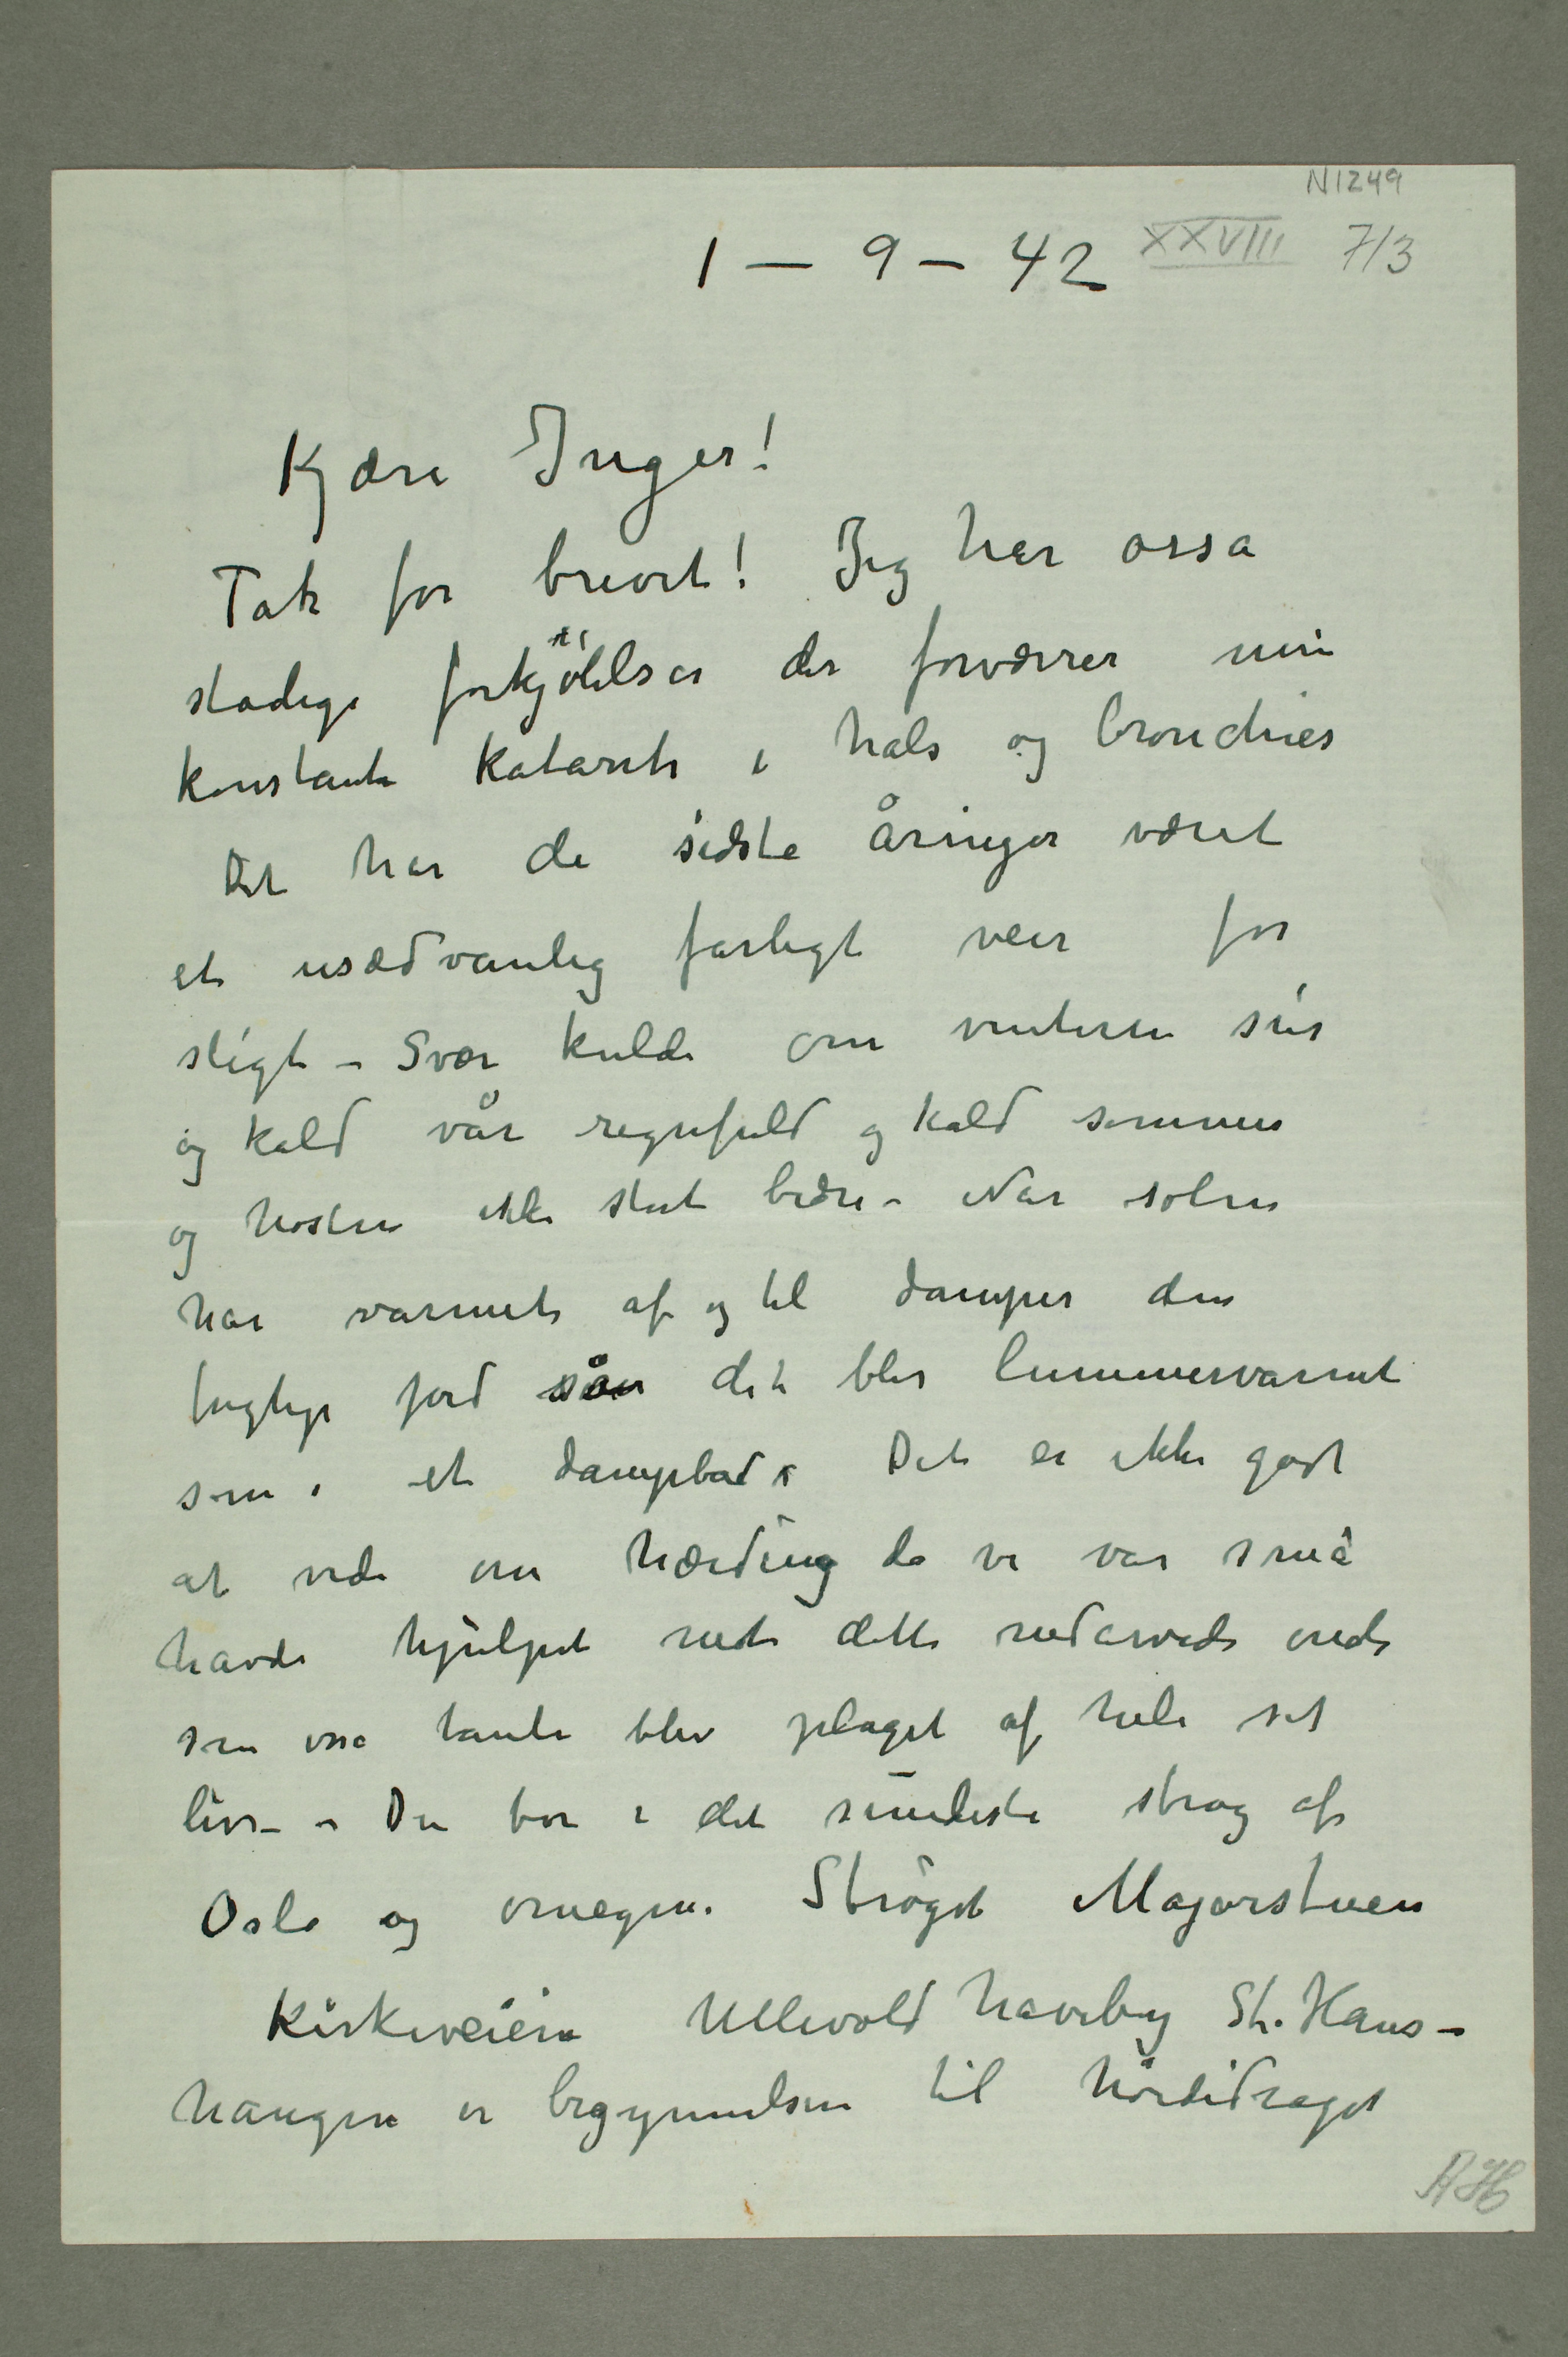 N1249
1 – 9 – 42 XXVIII 7/3
Kjære Inger!
Takk for brevet! Jeg har osså
stadige forkjølelser der forværrer min
konstante katarrh i hals og bronchier
Det har de sidste åringer været
et usædvanlig farligt veir for
sligt – Svær kulde om vinteren sur
og kald vår regnfuld og kald sommer
og høsten ikke stort bedre – Når solen
har varmet af og til damper den
fugtige jord så det blir lummervarmt
som i et dampbad. Det er ikke godt
at vide om hærding da vi var små
havde hjulpet mot dette nedarvede onde
som osså tante blev plaget af hele sit
liv – Du bor i det sundeste strøg af
Oslo og omegn. Strøget Majorstuen
Kirkeveien Ullevold haveby St. Hans-
haugen er begynnelsen til høidedraget
AH